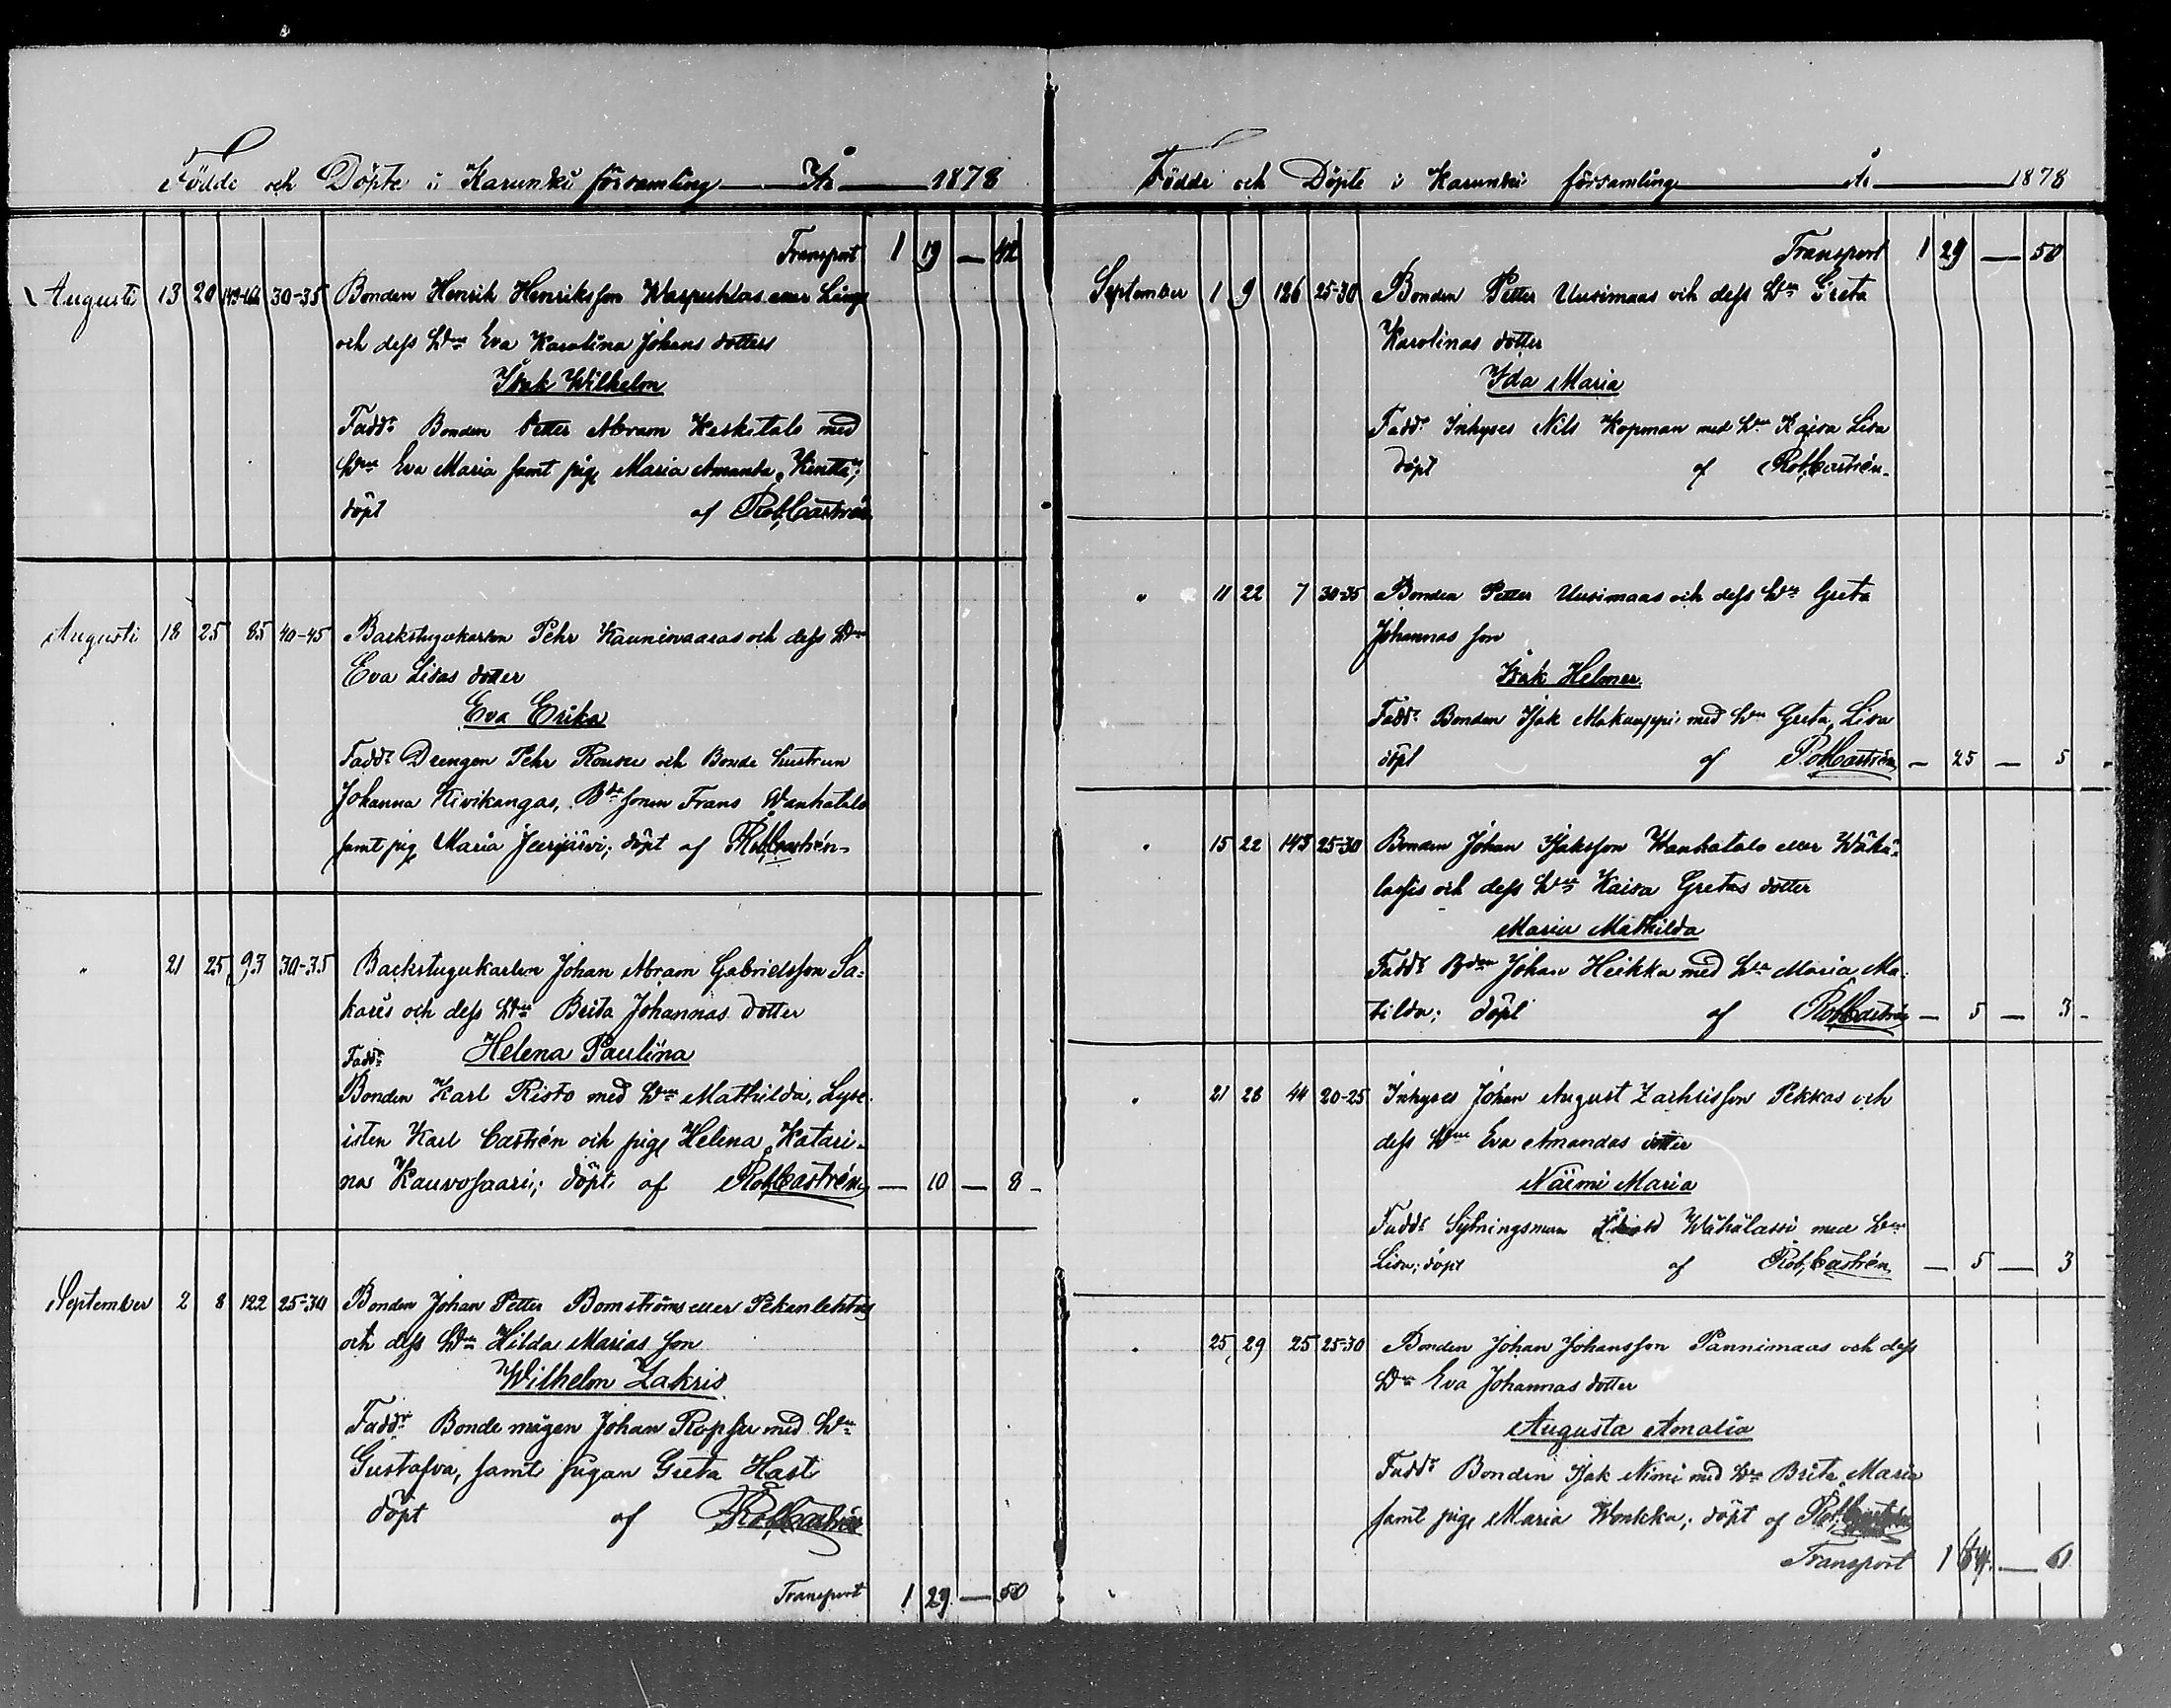 Födde och Döpte i Karunki församling År 1878
Transport 1 19 — 42
Augusti 13 20 30-35 Bonden Henrik Henriksson eller Länge
och dess Hu Eva Karolina Johans dotters
Isak Wilhelm
Fadd: Bonden Petter Abram Keskitalo med
Hu Eva Maria samt pig Maria Amanda Kenttä;
döpt af Rob. Castrén
Augusti 18 25 85 40-45 Backstugukarlen Pehr Kaunisvaaras och dess Hu
Eva Lisas dotter
Eva Erika
Fadd: Drengen Pehr Rousu och Bonde hustrun
Johanna Kivikangas, Bde sonen Frans Wanhatalo
samt pig Maria Jeerijärvi; döpt af Rob. Castrén
" 21 25 93 30-35 Backstugukarlen Johan Abram Gabrielsson Sa-
karis och dess Hu Brita Johannas dotter
Fadd: Helena Paulina
Bonden Karl Risto med Hu Mathilda, Lyce-
isten Karl Castrén och pig Helena Katari-
na Kauvosaari; döpt af Rob. Castrén — 10 — 8
September 2 8 122 25-30 Bonden Johan Petter Bomströms eller Pekanlehtos
och dess Hu Hilda Marias son
Wilhelm Zakris
Fadd: Bonde mågen Johan med Hu
Gustafva, samt pigan Greta Hast
döpt af Rob. Castrén
Transport 1 29 — 50
Födde och Döpte i Karunki församling År 1878
Transport 1 29 — 50
September 1 9 126 25-30 Bonden Petter Uusimaas och dess Hu Greta
Karolinas dotter
Ida Maria
Fadd: Inhyses Nils Kopman med Hu Kaisa Lisa
döpt af Rob. Castrén
" 11 22 7 30-35 Bonden Petter Uusimaas och dess Hu Greta
Johannas son
Isak Helmer
Fadd: Bonden Isak med Hu Greta Lisa
döpt af Rob. Castrén — 25 — 5
" 15 22 143 25-30 Bonden Johan Isaksson Wanhatalo eller Wähä-
lassis och dess Hu Kaisa Gretas dotter
Maria Mathilda
Fadd: Bden Johan Heikka med Hu Maria Ma-
tilda; döpt af Rob. Castrén — 5 — 3
" 21 28 44 20-25 Inhyses Johan August Zachrisson Pekkas och
dess Hu Eva Amandas dotter
Naimi Maria
Fadd: Sytningsman Wähälassi med Hu
Lisa; döpt af Rob. Castrén — 5 — 3
" 25 29 25 25-30 Bonden Johan Johansson Pannimaas och dess
Hu Eva Johannas dotter
Augusta Amalia
Fadd: Bonden Isak Nimi med Hu Brita Maria
samt pig Maria; döpt af Rob. Castrén
Transport 1 64 — 61